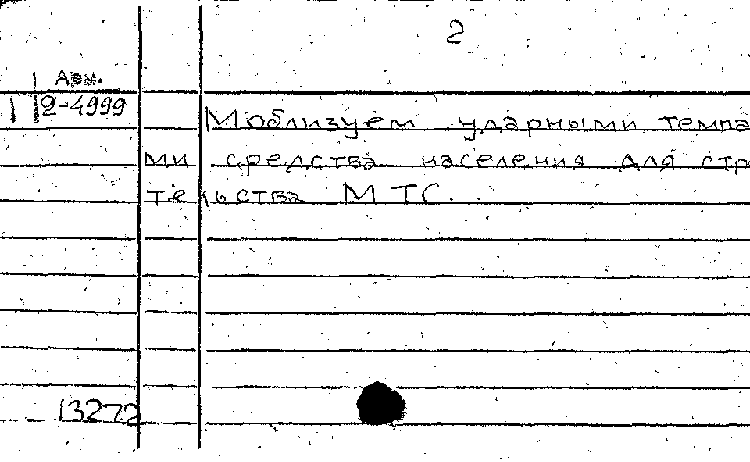 2
Арм.
2-4999
Моблизуем ударными темпа
ми средства населения для стр
тельства МТС.
13272